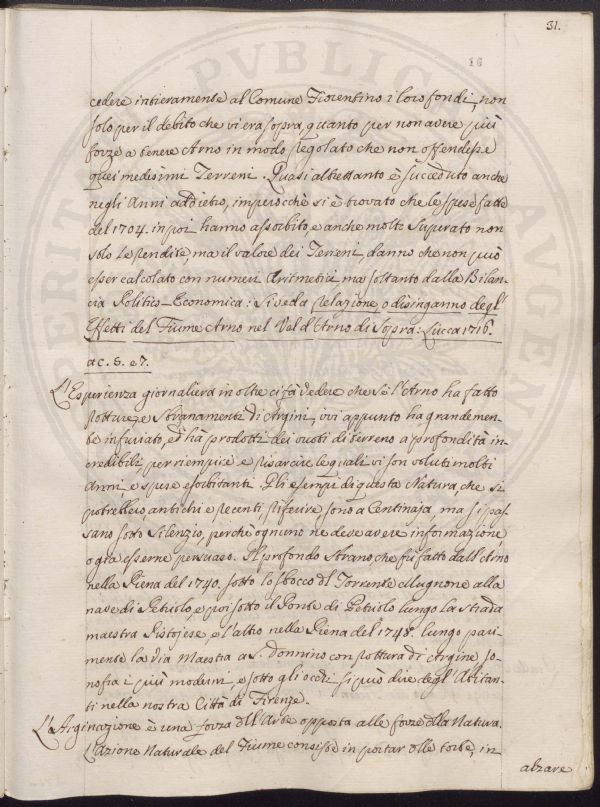 31.
16
cedere intieramente al Comune Fiorentino i loro fondi, non
solo per il debito che vi era sopra, quanto per non avere più
forze a tenere Arno in modo regolato che non offendesse
quei medesimi Terreni. Quasi altrettanto è succeduto anche
negli Anni addietro, imperocchè si è trovato che le spese fatte
del 1704. in poi hanno assorbito e anche molto superato non
solo le rendite, ma il valore dei Terreni, danno che non può
esser calcolato con numeri Aritmetici ma soltanto dalla Bilan-
cia Politico-Economica: Si veda Relazione, o disinganno degl'
Effetti del Fiume Arno nel Val d'Arno di Sopra: Lucca 1716.
ac. 5. e 7.
L'Esperienza giornaliera inoltre ci fà vedere che se l'Arno ha fatto
rotture, e stranamenti di Argini, ivi appunto ha grandemen-
te infuriato, ed ha prodotti dei vuoti di terreno a profondità in-
credibili, per riempire e risarcire le quali vi son voluti molti
Anni, e spese esorbitanti. Gli esempi di questa Natura, che si
potrebbero, antichi e recenti, riferire sono a Centinaja, ma si pas-
sano sotto silenzio, perchè ognuno ne deve avere informazione,
o già esserne persuaso. Il profondo Strano, che fù fatto dall'Arno
nella Piena del 1740. sotto lo sbocco dl Torrente Mugnone alla
nave di Petriolo, e poi sotto il Ponte di Petriolo lungo la strada
maestra Pistojese, e l'altro nella Piena del 1745. lungo pari-
mente la via Maestra a S. Donnino con rottura di Argine so-
no fra i più moderni, e sotto gli occhi si può dire degl'Abitan-
ti nella nostra Città di Firenze.
L'Arginazione è una forza dll'Arte opposta alle forze dlla Natura.
L'azione Naturale del Fiume consiste in portar dlle torbe, in
alzare
PVBLIC